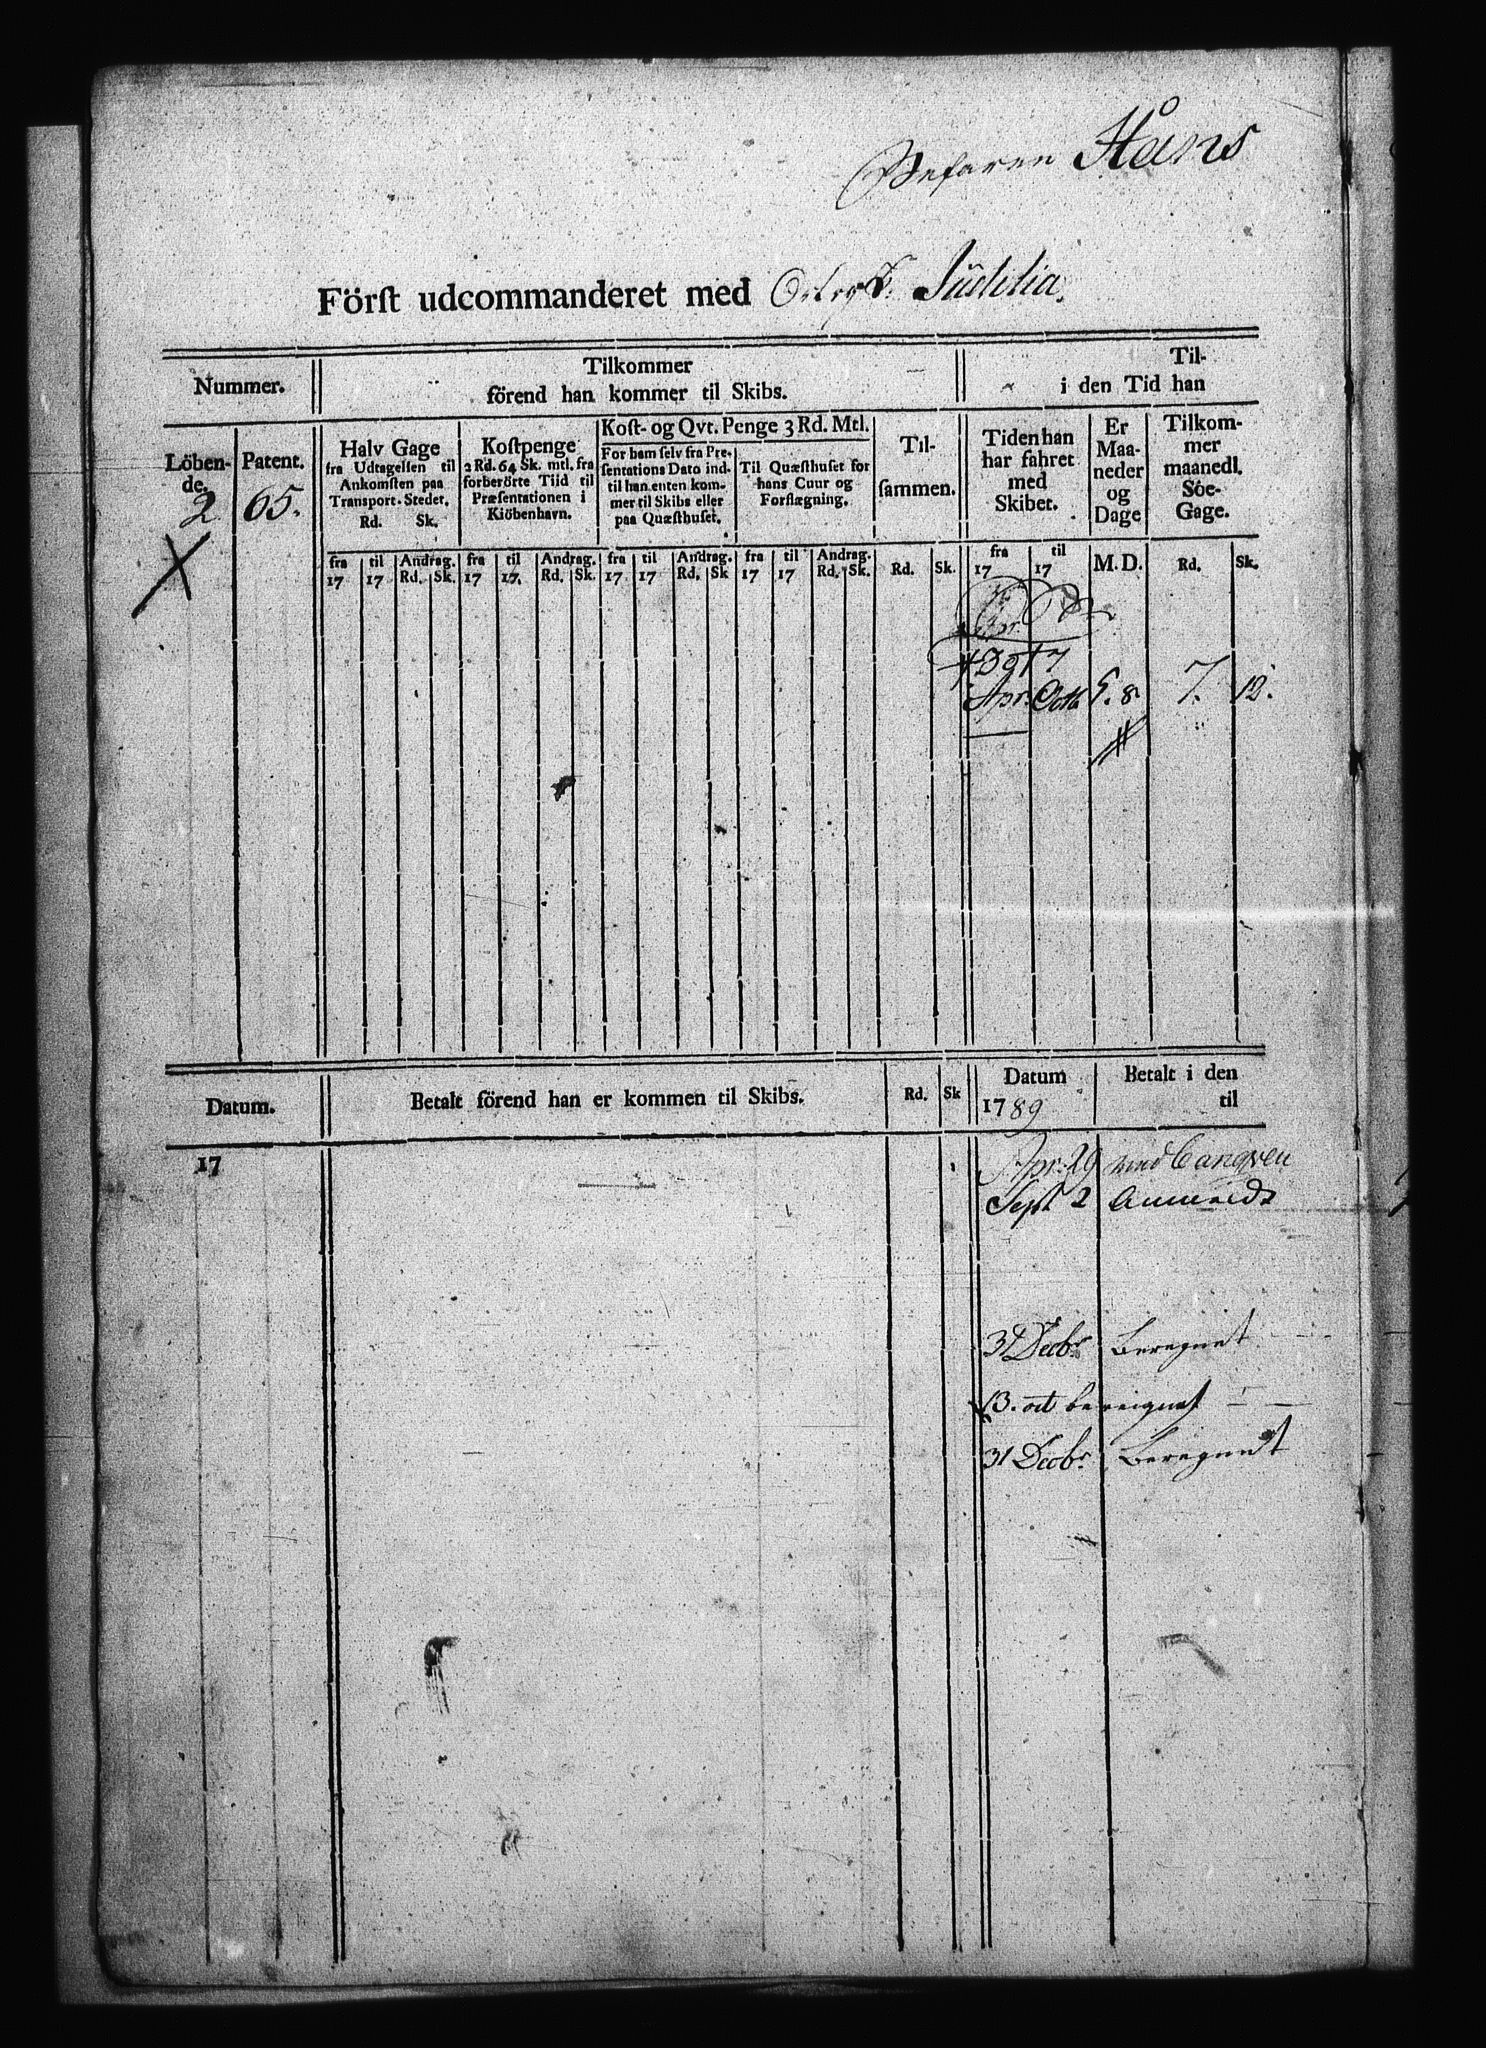 Befaren Hans
Först udcommanderet med Orlogsk. Juditia.
Nummer.
Tilkommer
förend han kommer til Skibs.
Til-
i den Tid han
Löben-
de.
2
Patent.
65.
Halv Gage
fra Udtagelsen til
Ankomsten paa
Transport-Stedet.
Rd. Sk.
Kostpenge
2 Rd. 64 Sk. mtl. fra
forberörte Tiid til
Præsentationen i
Kiöbenhavn.
Kost- og Qvt. Penge 3 Rd. Mtl.
For ham selv fra Pre-
sentations Dato ind-
til han enten kom-
mer til Skibs eller
paa Quæsthuset.
Til Quæsthuset for
hans Cuur og
Forslægning.
Til-
sammen.
Tiden han
har fahret
med
Skibet.
Er
Maa-
neder
og
Dage
Tilkom-
mer
maanedl.
Söe-
Gage.
fra til Andrag. fra til Andrag. fra til Andrag. fra til Andrag. fra til
17 17 Rd. Sk. 17 17. Rd. Sk. 17 17 Rd. Sk 17 17 Rd. Sk. Rd. Sk. 17 17 M. D. Rd. Sk.
Apr. Octb 5. 8. 7. 12.
Datum.
Betalt förend han er kommen til Skibs.
Rd. Sk
Datum
1789
Betalt i den
til
17
Apr. 29
Sept 2 Anmeldt
31 Decbr Beregnet
13. oct bereignet
31 Decbr Beregnet